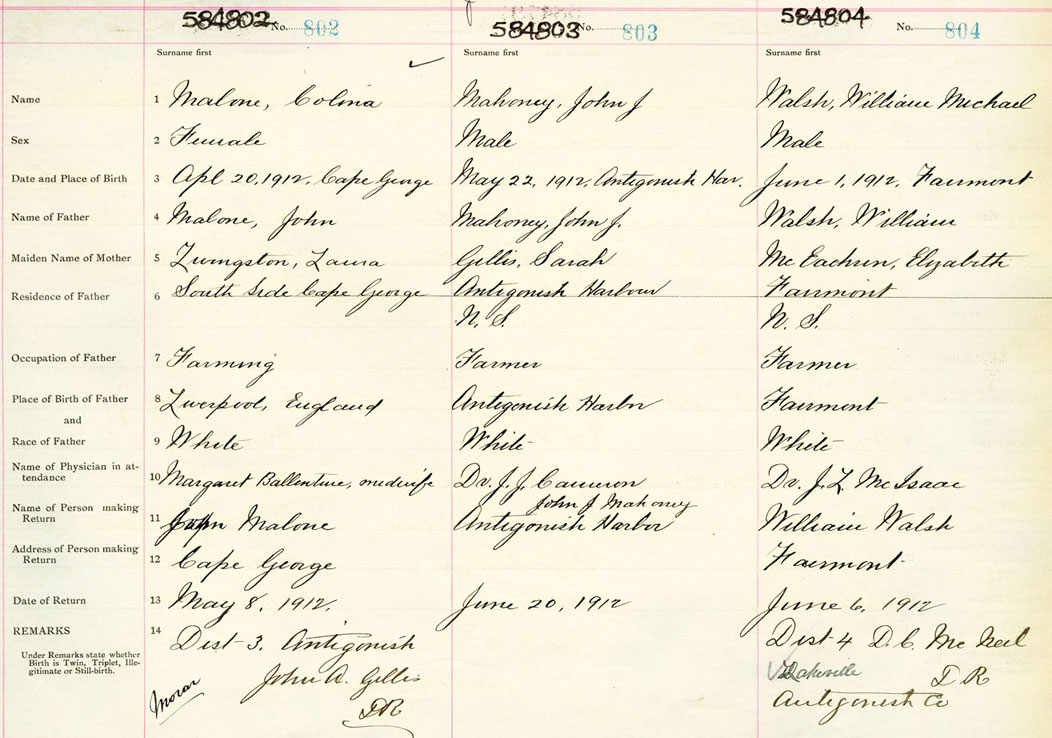 584802 No. 802
584803 No. 803
584804 No. 804
Surname first Surname first Surname first
Name 1 Malone, Colina Mahoney, John J Walsh, William Michael
Sex 2 Female Male Male
Date and Place of Birth 3 Apl 20, 1912, Cape George May 22, 1912, Antigonish Har. June 1, 1912, Fairmont
Name of Father 4 Malone, John Mahoney, John J. Walsh, William
Maiden Name of Mother 5 Livingston, Laura Gillis, Sarah McEachren, Elizabeth
Residence of Father 6 South Side Cape George Antigonish Harbour Fairmont
N. S. N. S.
Occupation of Father 7 Farming Farmer Farmer
Place of Birth of Father 8 Liverpool, England Antigonish Harbor Fairmont
and
Race of Father 9 White White White
Name of Physician in at-
tendance 10 Margaret Ballentine, midwife Dr. J. J. Cameron Dr. J. L. McIsaac
Name of Person making
Return 11 John Malone John J Mahoney Antigonish Harbor William Walsh
Address of Person making
Return 12 Cape George Fairmont
Date of Return 13 May 8, 1912. June 20, 1912 June 6, 1912
REMARKS 14 Dist-3. Antigonish Dist-4 D. C. McNeil
Under Remarks state whether
Birth is Twin, Triplet, Ille-
gitimate or Still-birth.
John A. Gillis D R
Moran DR Antigonish Co